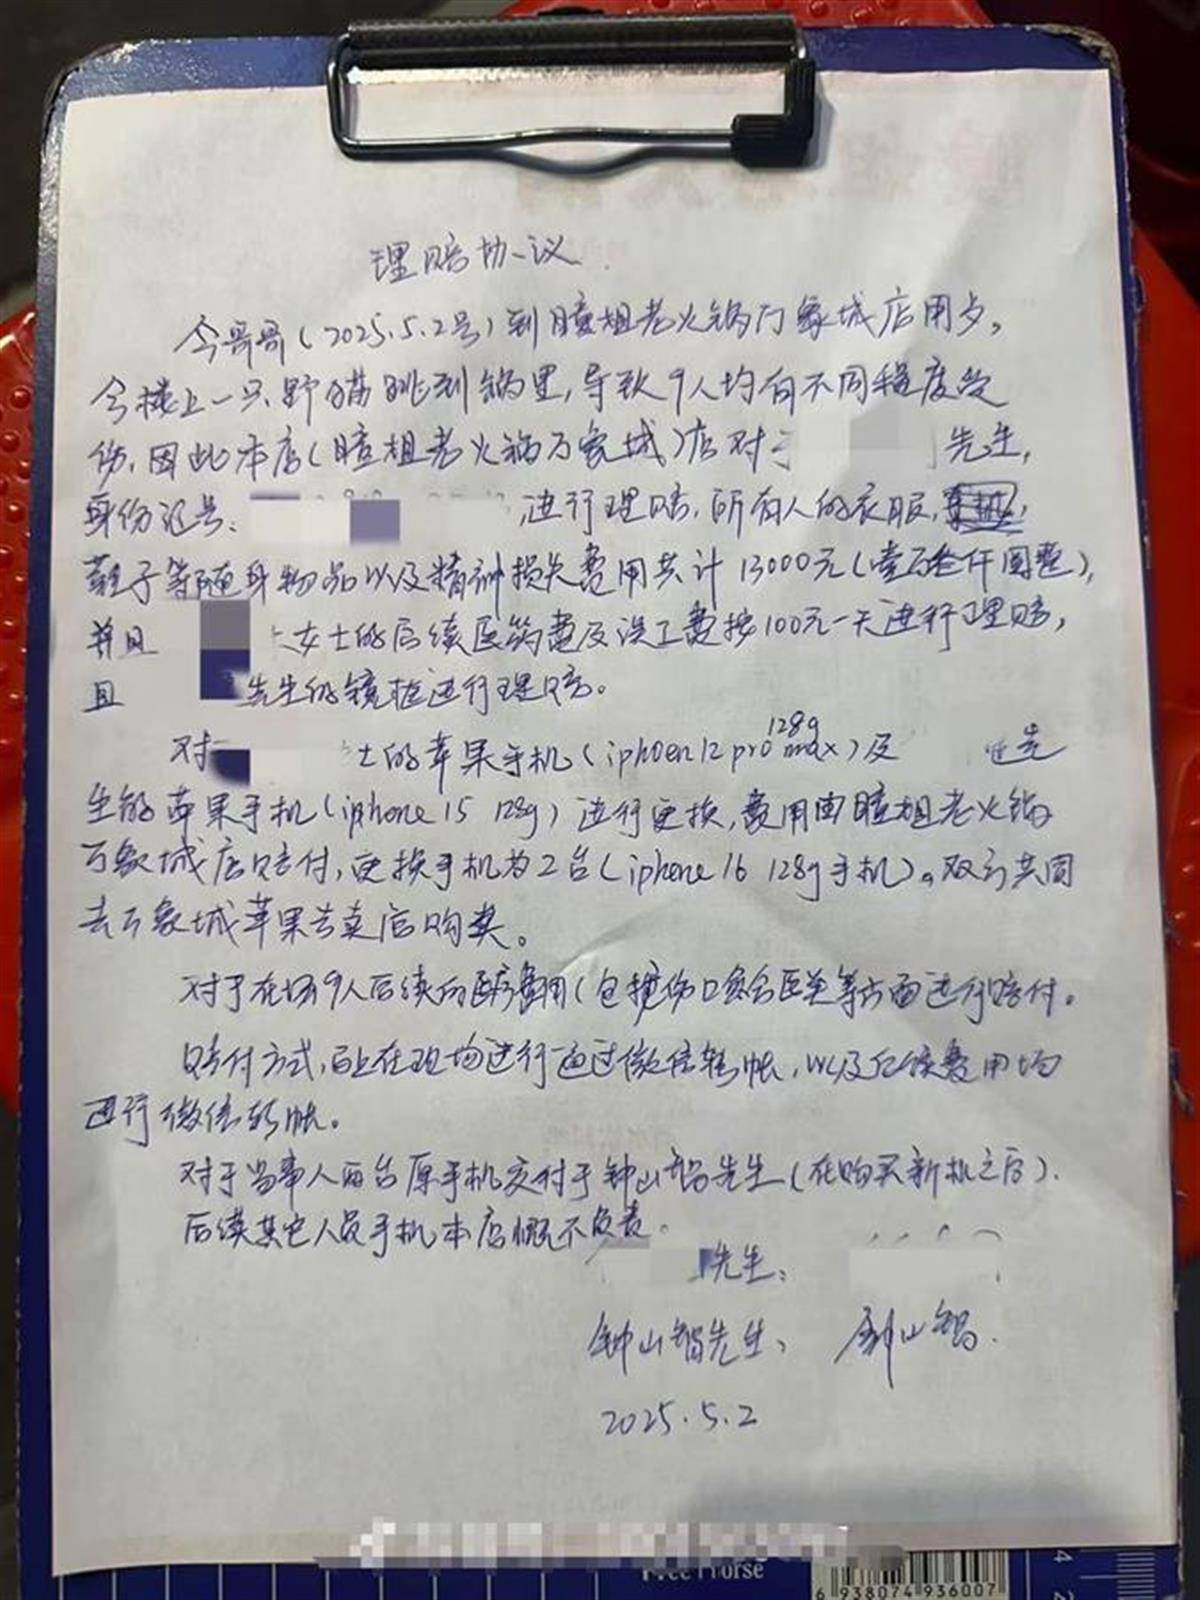 理赔协议
今哥哥（2025.5.2号）到瞳姐老火锅万象城店用夕，
今楼上一只野猫跳到锅里，导致9人均有不同程度受
伤，因此本店（瞳姐老火锅万象城）店对于 先生，
身份证号： ，进行理赔，所有人的衣服，
鞋子等随身物品以及精神损失费用共计13000元（壹万叁仟圆整），
并且 女士的后续医药费及误工费按100元一天进行理赔，
且 先生的镜框进行理赔。
对 士的苹果手机（iphoen 12 pro max 128g）及 先
生的苹果手机（iphone 15 128g）进行更换，费用由瞳姐老火锅
万象城店赔付，更换手机为2台（iphone 16 128g手机）。双方共同
去万象城苹果专卖店购买。
对于在场9人后续的医疗费用（包括伤口愈合医美等方面进行赔付。
赔付方式，马上在现场进行通过微信转帐，以及后续费用均
进行微信转帐。
对于当事人两台原手机交付于钟山智先生（在购买新机之后）.
后续其它人员手机本店概不负责。
先生：
钟山智先生： 钟山智.
2025.5.2
Free Horse
6 938074 936007
4
2